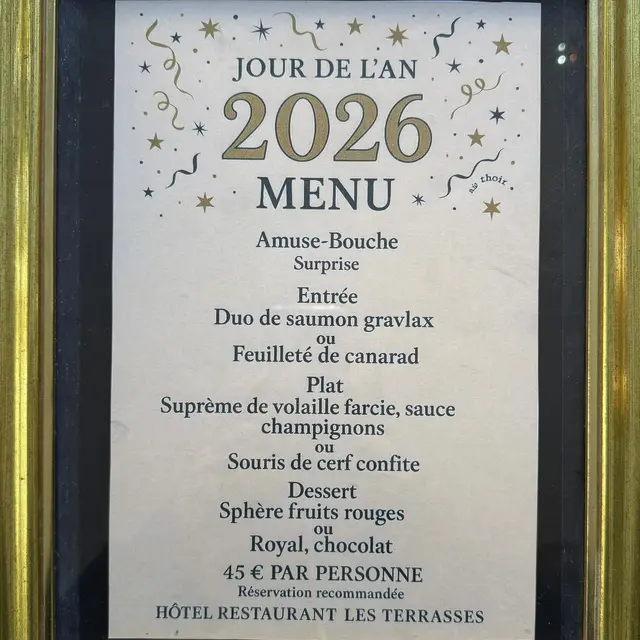 JOUR DE L'AN
2026
MENU
Amuse-Bouche
Surprise
Entrée
Duo de saumon gravlax
ou
Feuilleté de canarad
Plat
Suprème de volaille farcie, sauce
champignons
ou
Souris de cerf confite
Dessert
Sphère fruits rouges
ou
Royal, chocolat
45 € PAR PERSONNE
Réservation recommandée
HÔTEL RESTAURANT LES TERRASSES